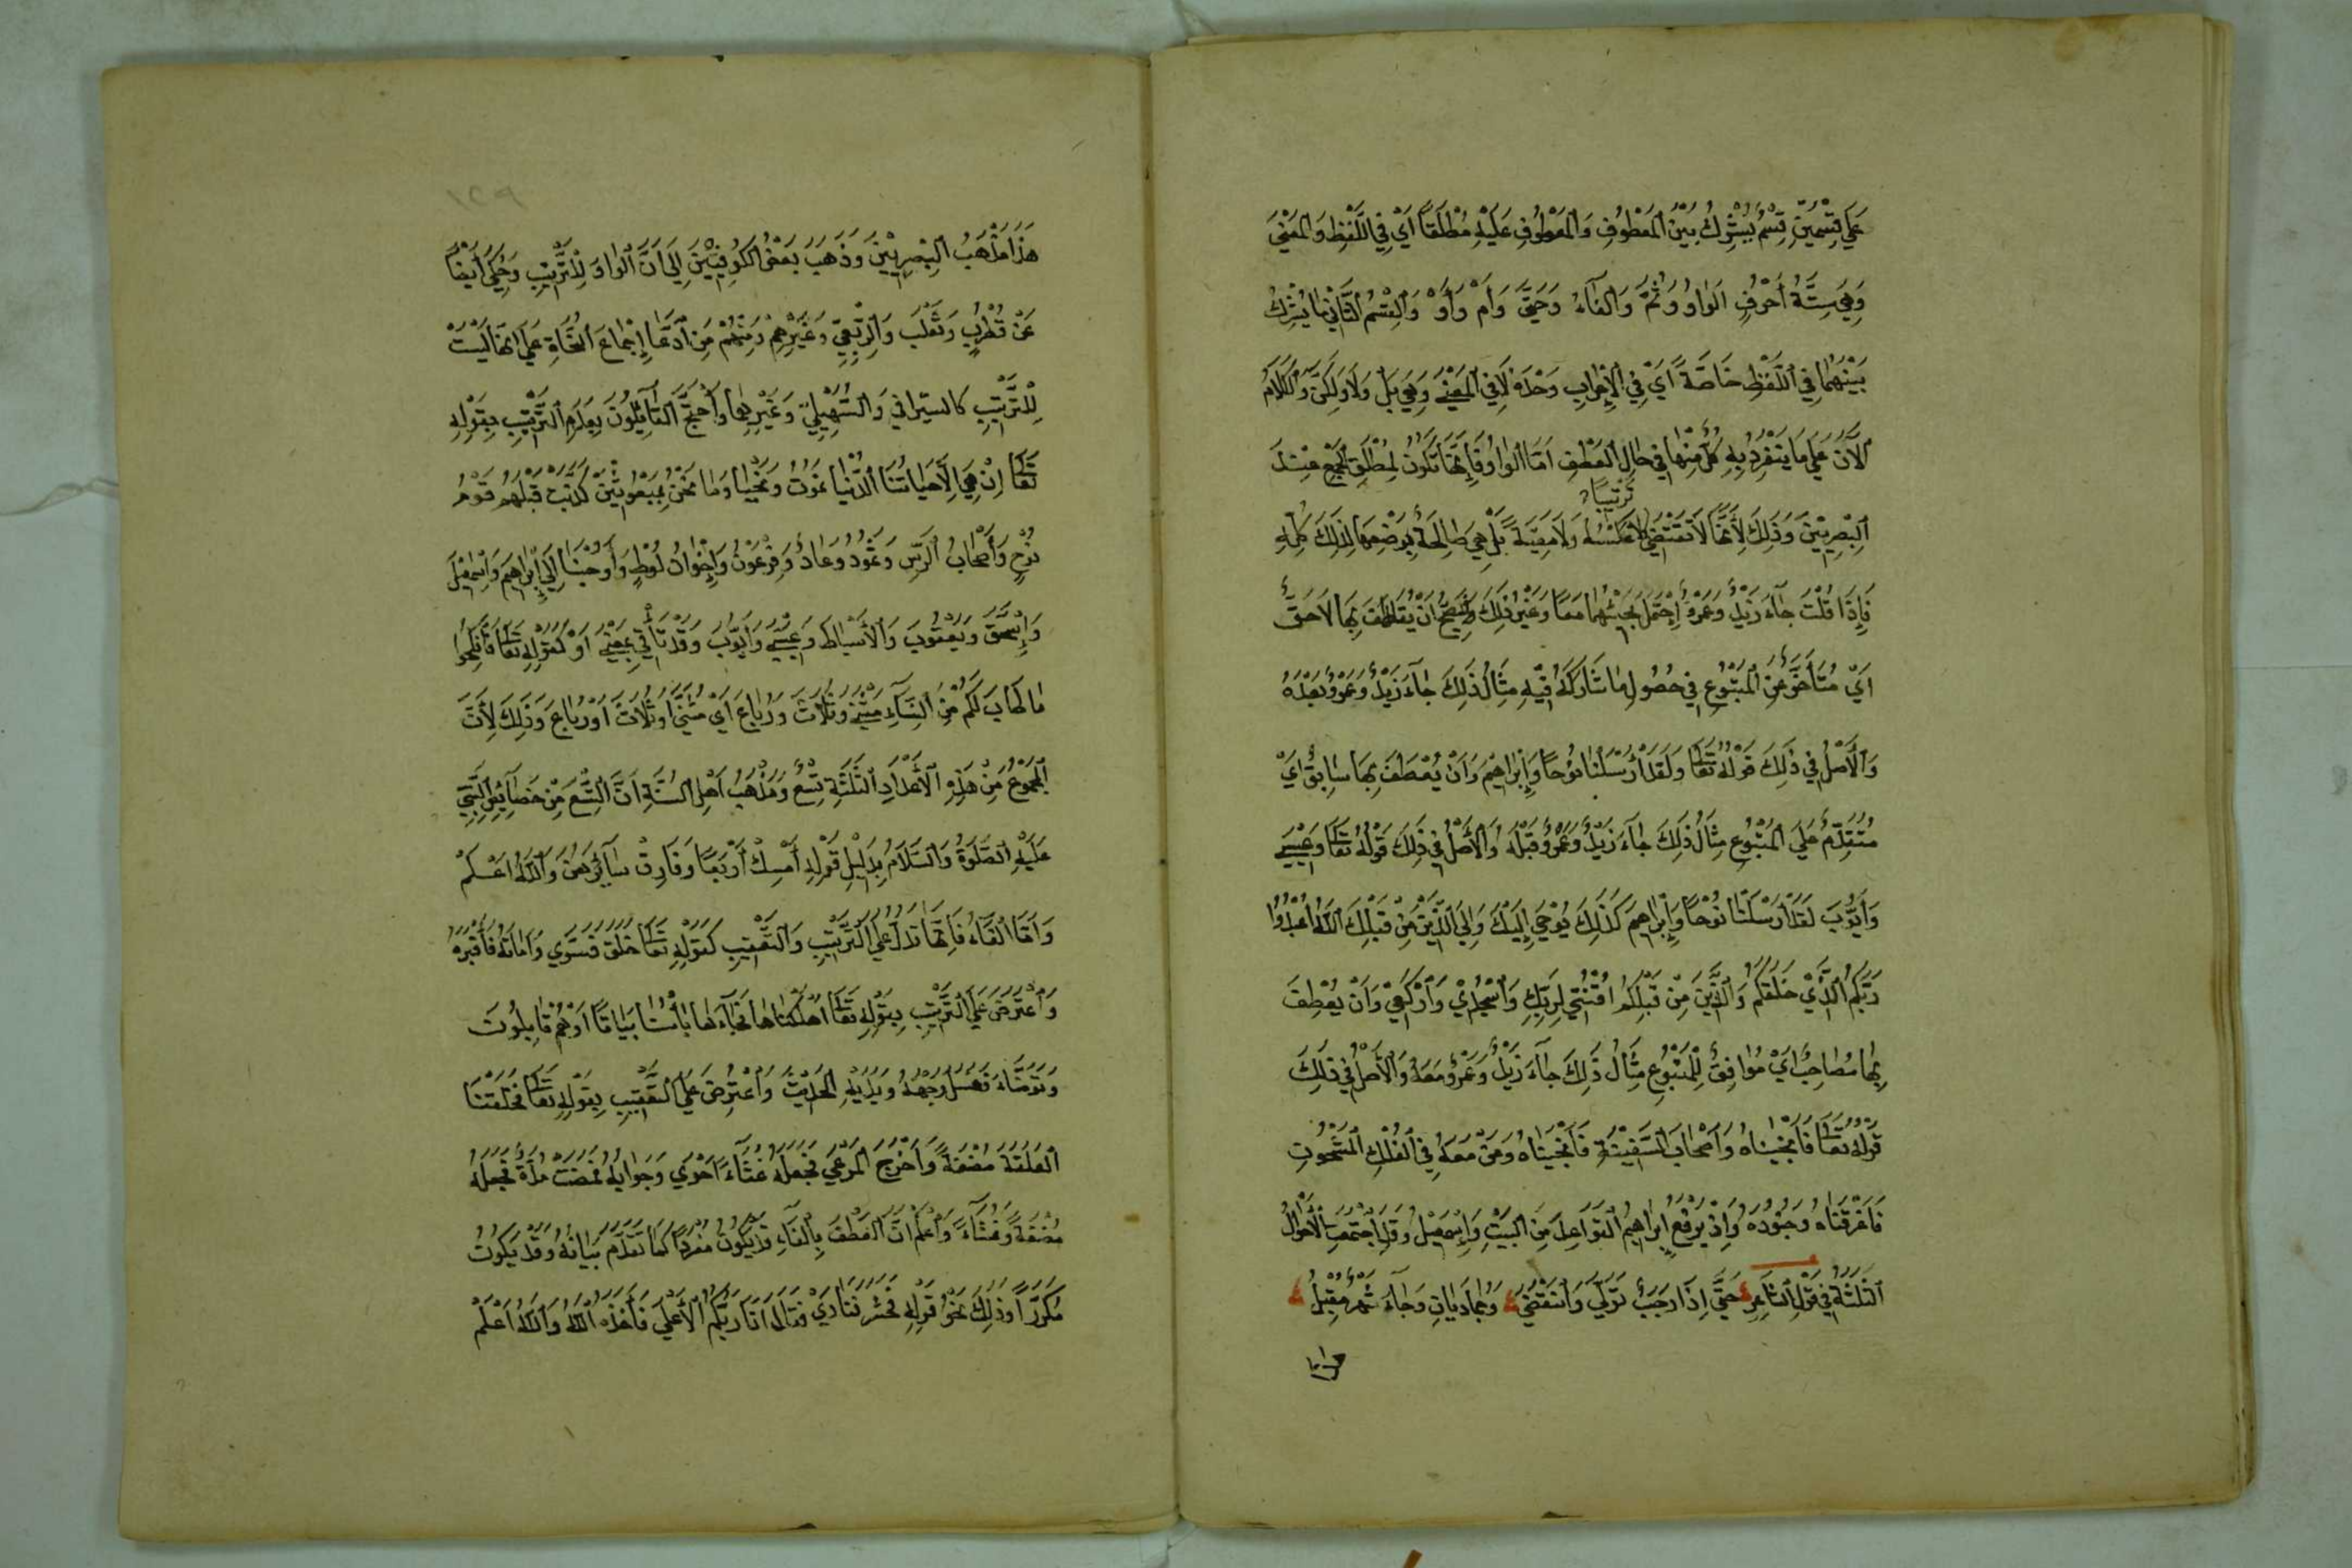 عَلَى قِسْمَيْنِ قِسْمٌ يُشَرِّكُ بَيْنَ الْمَعْطُوفِ وَالْمَعْطُوفِ عَلَيْهِ مُطْلَقًا أَيْ فِي اللَّفْظِ وَالْمَعْنَى
وَهِيَ سِتَّةُ أَحْرُفٍ الْوَاوُ وَثُمَّ وَالْفَاءُ وَحَتَّى وَأَمْ وَأَوْ وَالْقِسْمُ الثَّانِي مَا يُشَرِّكُ
بَيْنَهُمَا فِي اللَّفْظِ خَاصَّةً أَيْ فِي الْإِعْرَابِ وَحْدَهُ لَا فِي الْمَعْنَى وَهِيَ بَلْ وَلَا وَلَكِنْ وَالْكَلَامُ
الْآنَ عَلَى مَا يَنْفَرِدُ بِهِ كُلٌّ مِنْهَا فِي حَالِ الْعَطْفِ أَمَّا الْوَاوُ فَإِنَّهَا تَكُونُ لِمُطْلَقِ الْجَمْعِ عِنْدَ
تَرْتِيبًا
الْبَصْرِيِّينَ وَذَلِكَ لِأَنَّهَا لَا تَقْتَضِي لَا عَكْسَهُ وَلَا مَعِيَّةً بَلْ هِيَ صَالِحَةٌ بِوَضْعِهَا لِذَلِكَ كُلِّهِ
فَإِذَا قُلْتَ جَآءَ زَيْدٌ وَعَمْرٌو اِحْتَمَلَ مَجِيئُهُمَا مَعًا وَغَيْرَ ذَلِكَ وَيَصِحُّ أَنْ يُعْطَفَ بِهَا لَاحِقٌ
أَيْ مُتَأَخِّرٌ عَنِ الْمَتْبُوعِ فِي حُصُولِ مَا شَارَكَهُ فِيهِ مِثَالُ ذَلِكَ جَآءَ زَيْدٌ وَعَمْرٌو بَعْدَهُ
وَالْأَصْلُ فِي ذَلِكَ قَوْلُهُ تَعَالَى وَلَقَدْ أَرْسَلْنَا نُوحًا وَإِبْرَاهِيمَ وَأَنْ يُعْطَفَ بِهَا سَابِقٌ أَيْ
مُتَقَدِّمٌ عَلَى الْمَتْبُوعِ مِثَالُ ذَلِكَ جَآءَ زَيْدٌ وَعَمْرٌو قَبْلَهُ وَالْأَصْلُ فِي ذَلِكَ قَوْلُهُ تَعَالَى وَعِيسَى
وَأَيُّوبَ لَقَدْ أَرْسَلْنَا نُوْحًا وَإِبْرَاهِيمَ كَذَلِكَ يُوْحِي إِلَيْكَ وَإِلَى الَّذِيْنَ مِنْ قَبْلِكَ اللَّهُ اعْبُدُوا
رَبَّكُمُ الَّذِيْ خَلَقَكُمْ وَالَّذِيْنَ مِنْ قَبْلِكُمْ اقْنُتِي لِرَبِّكِ وَاسْجُدِيْ وَارْكَعِيْ وَأَنْ يُعْطَفَ
بِهَا مُصَاحِبٌ أَيْ مُوَافِقٌ لِلْمَتْبُوعِ مِثَالُ ذَلِكَ جَآءَ زَيْدٌ وَعَمْرٌو مَعَهُ وَالْأَصْلُ فِي ذَلِكَ
قَوْلُهُ تَعَالَى فَأَنْجَيْنَاهُ وَأَصْحَابَ السَّفِيْنَةِ فَأَنْجَيْنَاهُ وَمَنْ مَعَهُ فِي الْفُلْكِ الْمَشْحُونِ
فَأَغْرَقْنَاهُ وَجُنُوْدَهُ وَإِذْ يَرْفَعُ إِبْرَاهِيمُ الْقَوَاعِدَ مِنَ الْبَيْتِ وَإِسْمَعِيلُ وَقَدِ اجْتَمَعَتِ الْأَحْوَالُ
الثَّلَثَةُ فِي قَوْلِ الشَّاعِرِ حَتَّى إِذَا رَجَبٌ تَوَلَّى وَانْقَضَى وَجُمَادَيَانِ وَجَآءَ شَهْرٌ مُقْبِلُ
هذا
١٢٩
هَذَا مَذْهَبُ الْبَصْرِيِّيْنَ وَذَهَبَ بَعْضُ الْكُوفِيِّيْنَ إِلَى أَنَّ الْوَاوَ لِلتَّرْتِيبِ وَحُكِيَ أَيْضًا
عَنْ قُطْرُبٍ وَثَعْلَبَ وَالرَّبَعِيِّ وَغَيْرِهِمْ وَمِنْهُمْ مَنِ ادَّعَا إِجْمَاعَ النُّحَاةِ عَلَى أَنَّهَا لَيْسَتْ
لِلتَّرْتِيبِ كَالسِّيرَافِي وَالسُّهَيْلِيِّ وَغَيْرِهِمَا وَاحْتَجَّ الْقَآئِلُونَ بِعَدَمِ التَّرْتِيْبِ بِقَوْلِهِ
تَعَالَى إِنْ هِيَ إِلَّا حَيَاتُنَا الدُّنْيَا نَمُوتُ وَنَحْيَا وَمَا نَحْنُ بِمَبْعُوثِيْنَ كَذَّبَتْ قَبْلَهُمْ قَوْمُ
نُوْحٍ وَأَصْحَابُ الرَّسِّ وَثَمُوْدُ وَعَادٌ وَفِرْعَوْنُ وَإِخْوَانُ لُوطٍ وَأَوْحَيْنَا إِلَى إِبْرَاهِيمَ وَإِسْمَعِيْلَ
وَإِسْحَقَ وَيَعْقُوبَ وَالْأَسْبَاطِ وَعِيْسَى وَأَيُّوْبَ وَقَدْ تَأْتِي بِمَعْنَى أَوْ كَقَوْلِهِ تَعَالَى فَانْكِحُوا
مَا طَابَ لَكُمْ مِنَ النِّسَآءِ مَثْنَى وَثُلَاثَ وَرُبَاعَ أَيْ مَثْنَى أَوْ ثُلَاثَ أَوْ رُبَاعَ وَذَلِكَ لِأَنَّ
الْمَجْمُوْعَ مِنْ هَذِهِ الْأَعْدَادِ الثَّلَثَةِ تِسْعٌ وَمَذْهَبُ أَهْلِ السُّنَّةِ أَنَّ التِّسْعَ مِنْ خَصَآئِصِ النَّبِيِّ
عَلَيْهِ الصَّلَوةُ وَالسَّلَامُ بِدَلِيْلِ قَوْلِهِ أَمْسِكْ أَرْبَعًا وَفَارِقْ سَآئِرَهُنَّ وَاللَّهُ أَعْلَمُ
وَأَمَّا الْفَآءُ فَإِنَّهَا تَدُلُّ عَلَى التَّرْتِيْبِ وَالتَّعْقِيْبِ كَقَوْلِهِ تَعَالَى خَلَقَ فَسَوَّى وَأَمَاتَهُ فَأَقْبَرَهُ
وَاعْتُرِضَ عَلَى التَّرْتِيْبِ بِقَوْلِهِ تَعَالَى أَهْلَكْنَاهَا فَجَآءَهَا بَأْسُنَا بَيَاتًا أَوْ هُمْ قَآئِلُوْنَ
وَتَوَضَّأَ فَغَسَلَ وَجْهَهُ وَيَدَيْهِ الْحَدِيْثَ وَاعْتُرِضَ عَلَى التَّعْقِيْبِ بِقَوْلِهِ تَعَالَى فَخَلَقْنَا
الْعَلَقَةَ مُضْغَةً وَأَخْرَجَ الْمَرْعَى فَجَعَلَهُ غُثَآءً أَحْوَى وَجَوَابُهُ فَمَضَتْ مُدَّةٌ فَجَعَلَهُ
مُضْغَةً وَغُثَآءً وَاعْلَمْ أَنَّ الْعَطْفَ بِالْفَآءِ قَدْ يَكُوْنُ مُفْرَدًا كَمَا تَقَدَّمَ بَيَانُهُ وَقَدْ يَكُونُ
مُكَرَّرًا وَذَلِكَ نَحْوُ قَوْلِهِ فَحَشَرَ فَنَادَى فَقَالَ أَنَا رَبُّكُمُ الْأَعْلَى فَأَخَذَهُ اللَّهُ وَاللَّهُ أَعْلَمُ